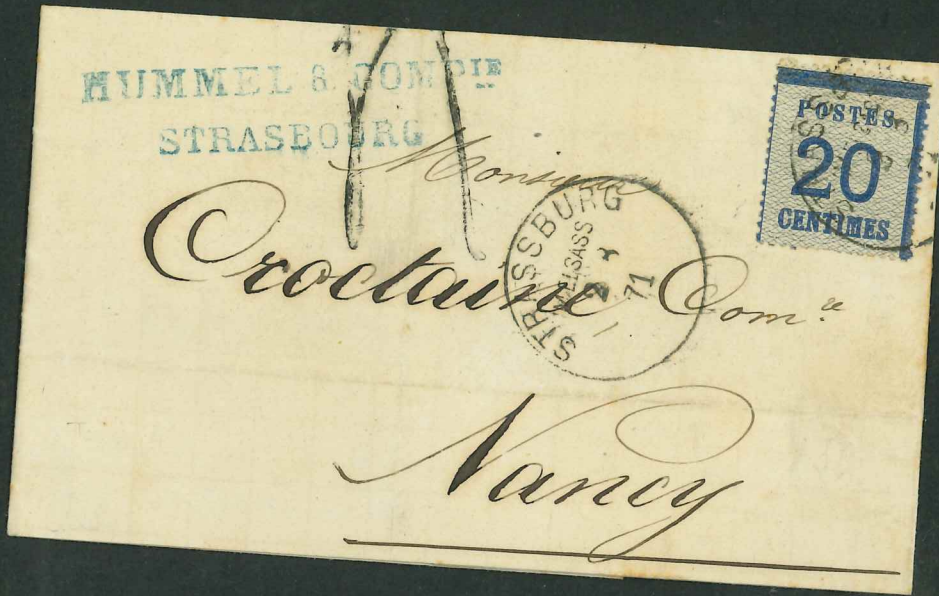 HUMMEL & COMPIE
STRASBOURG
POSTES
20
CENTIMES
Monsieur
STRASSBURG
IM ELSASS
2 3
71
Croctaine Comce
Nancy